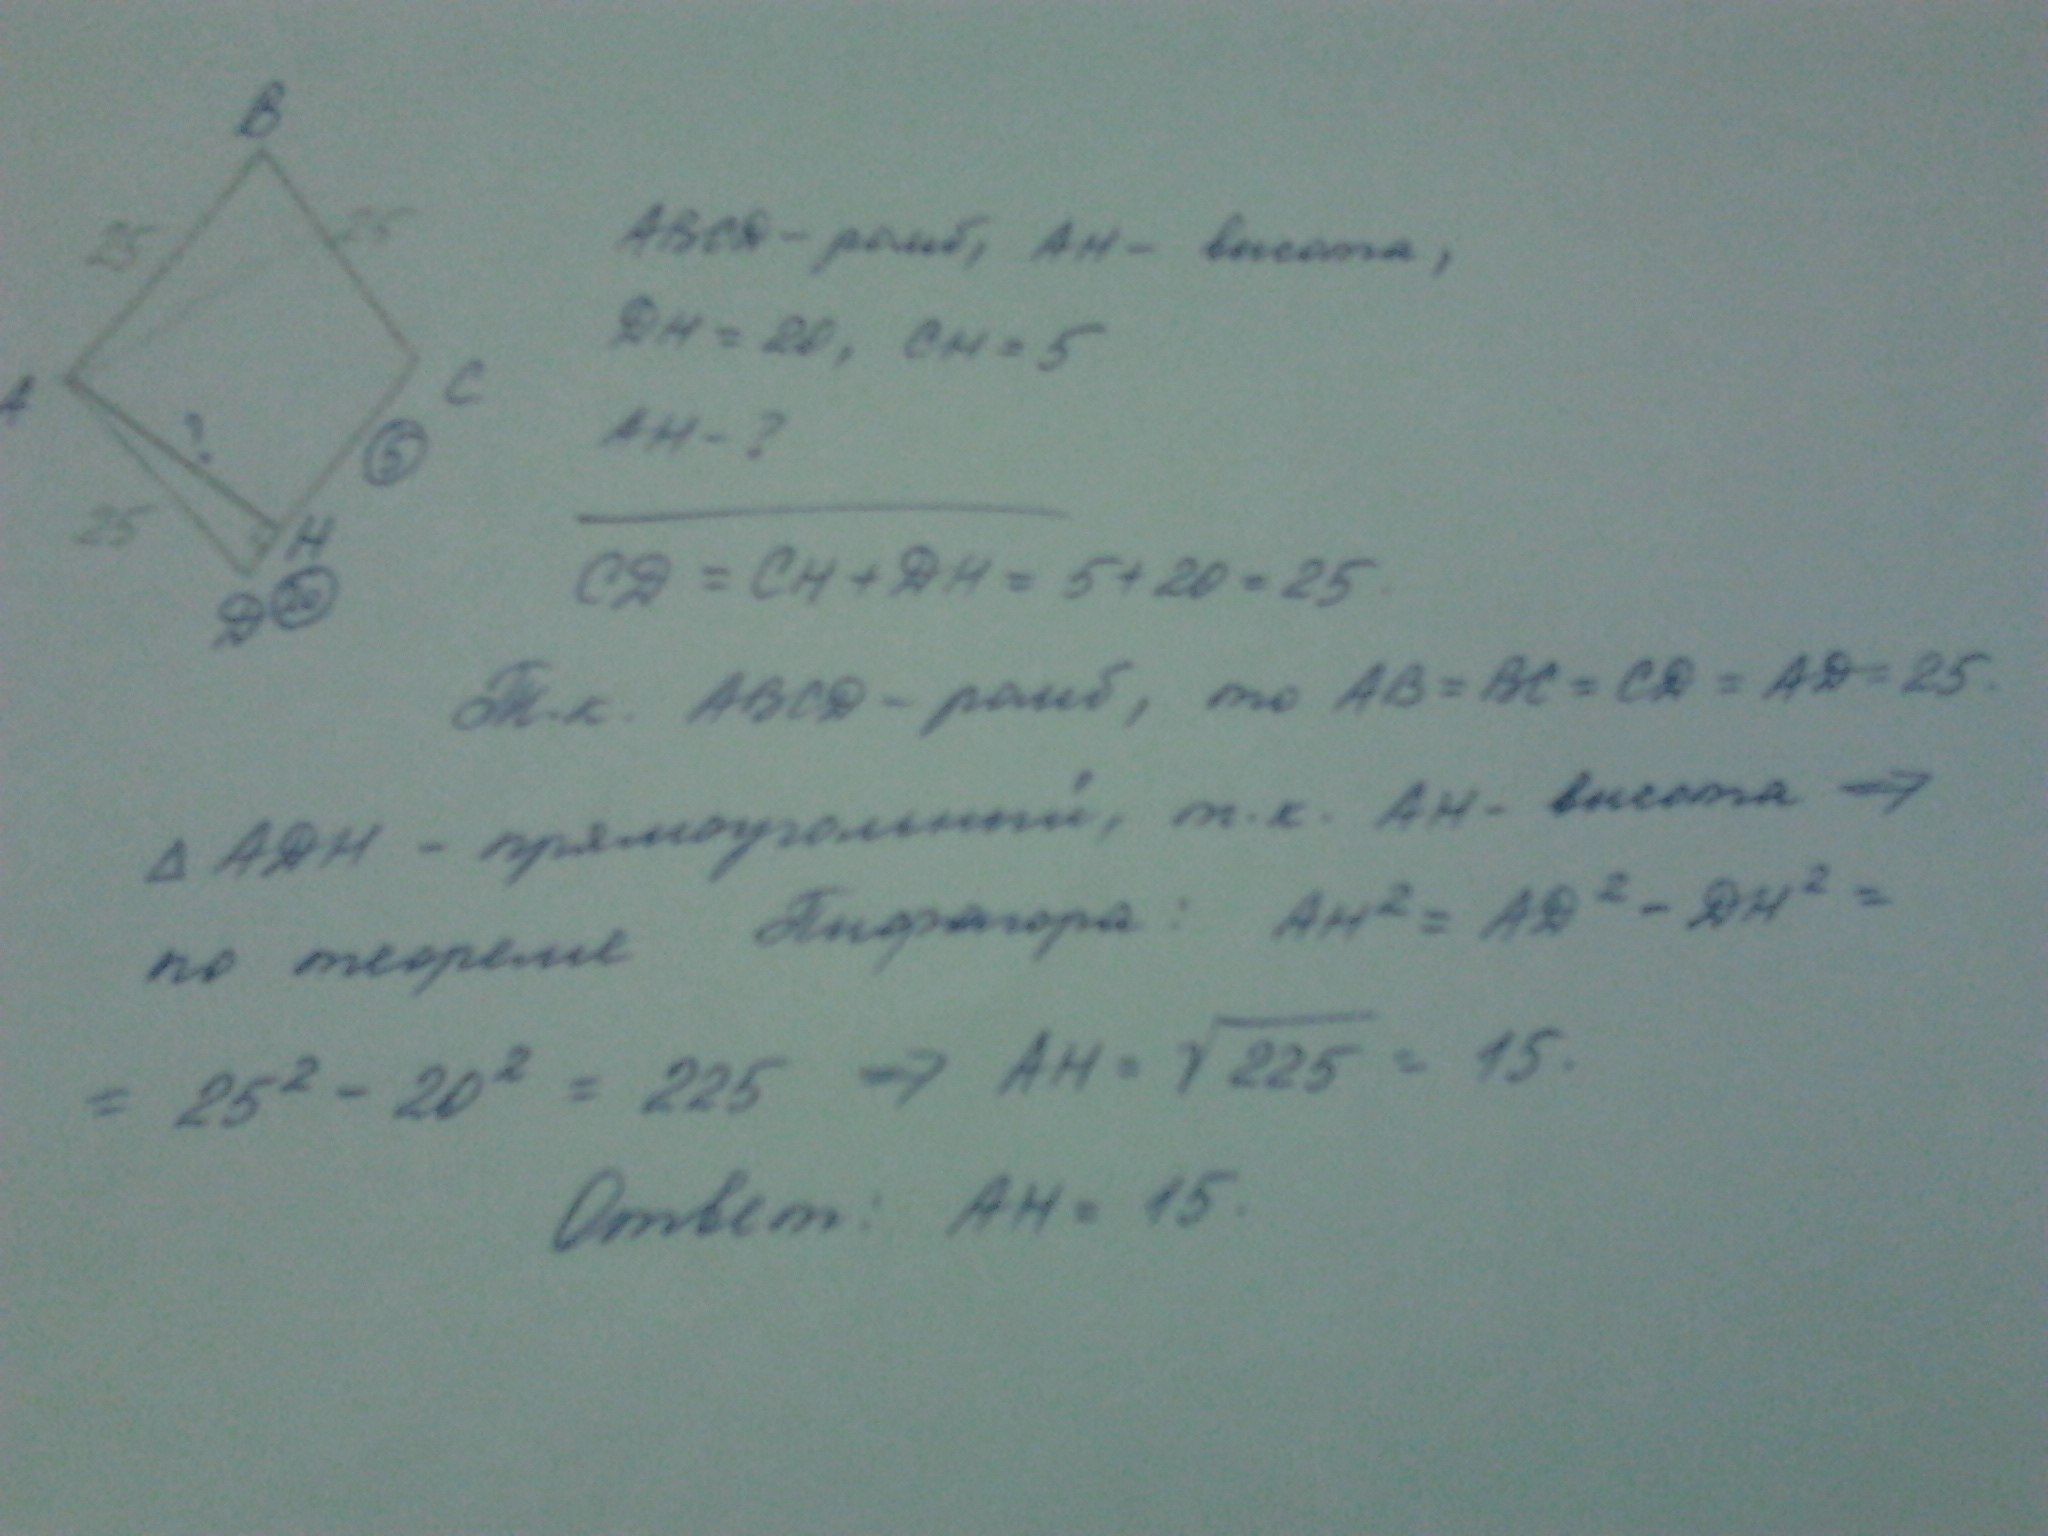 B
25
25
A
C
?
5
25
H
D 20
ABCD - ромб, AH - высота,
DH = 20, CH = 5
AH - ?
CD = CH + DH = 5 + 20 = 25.
Т.к. ABCD - ромб, то AB = BC = CD = AD = 25.
Δ ADH - прямоугольный, т.к. AH - высота →
по теореме Пифагора: AH² = AD² - DH² =
= 25² - 20² = 225 → AH = √225 = 15.
Ответ: AH = 15.